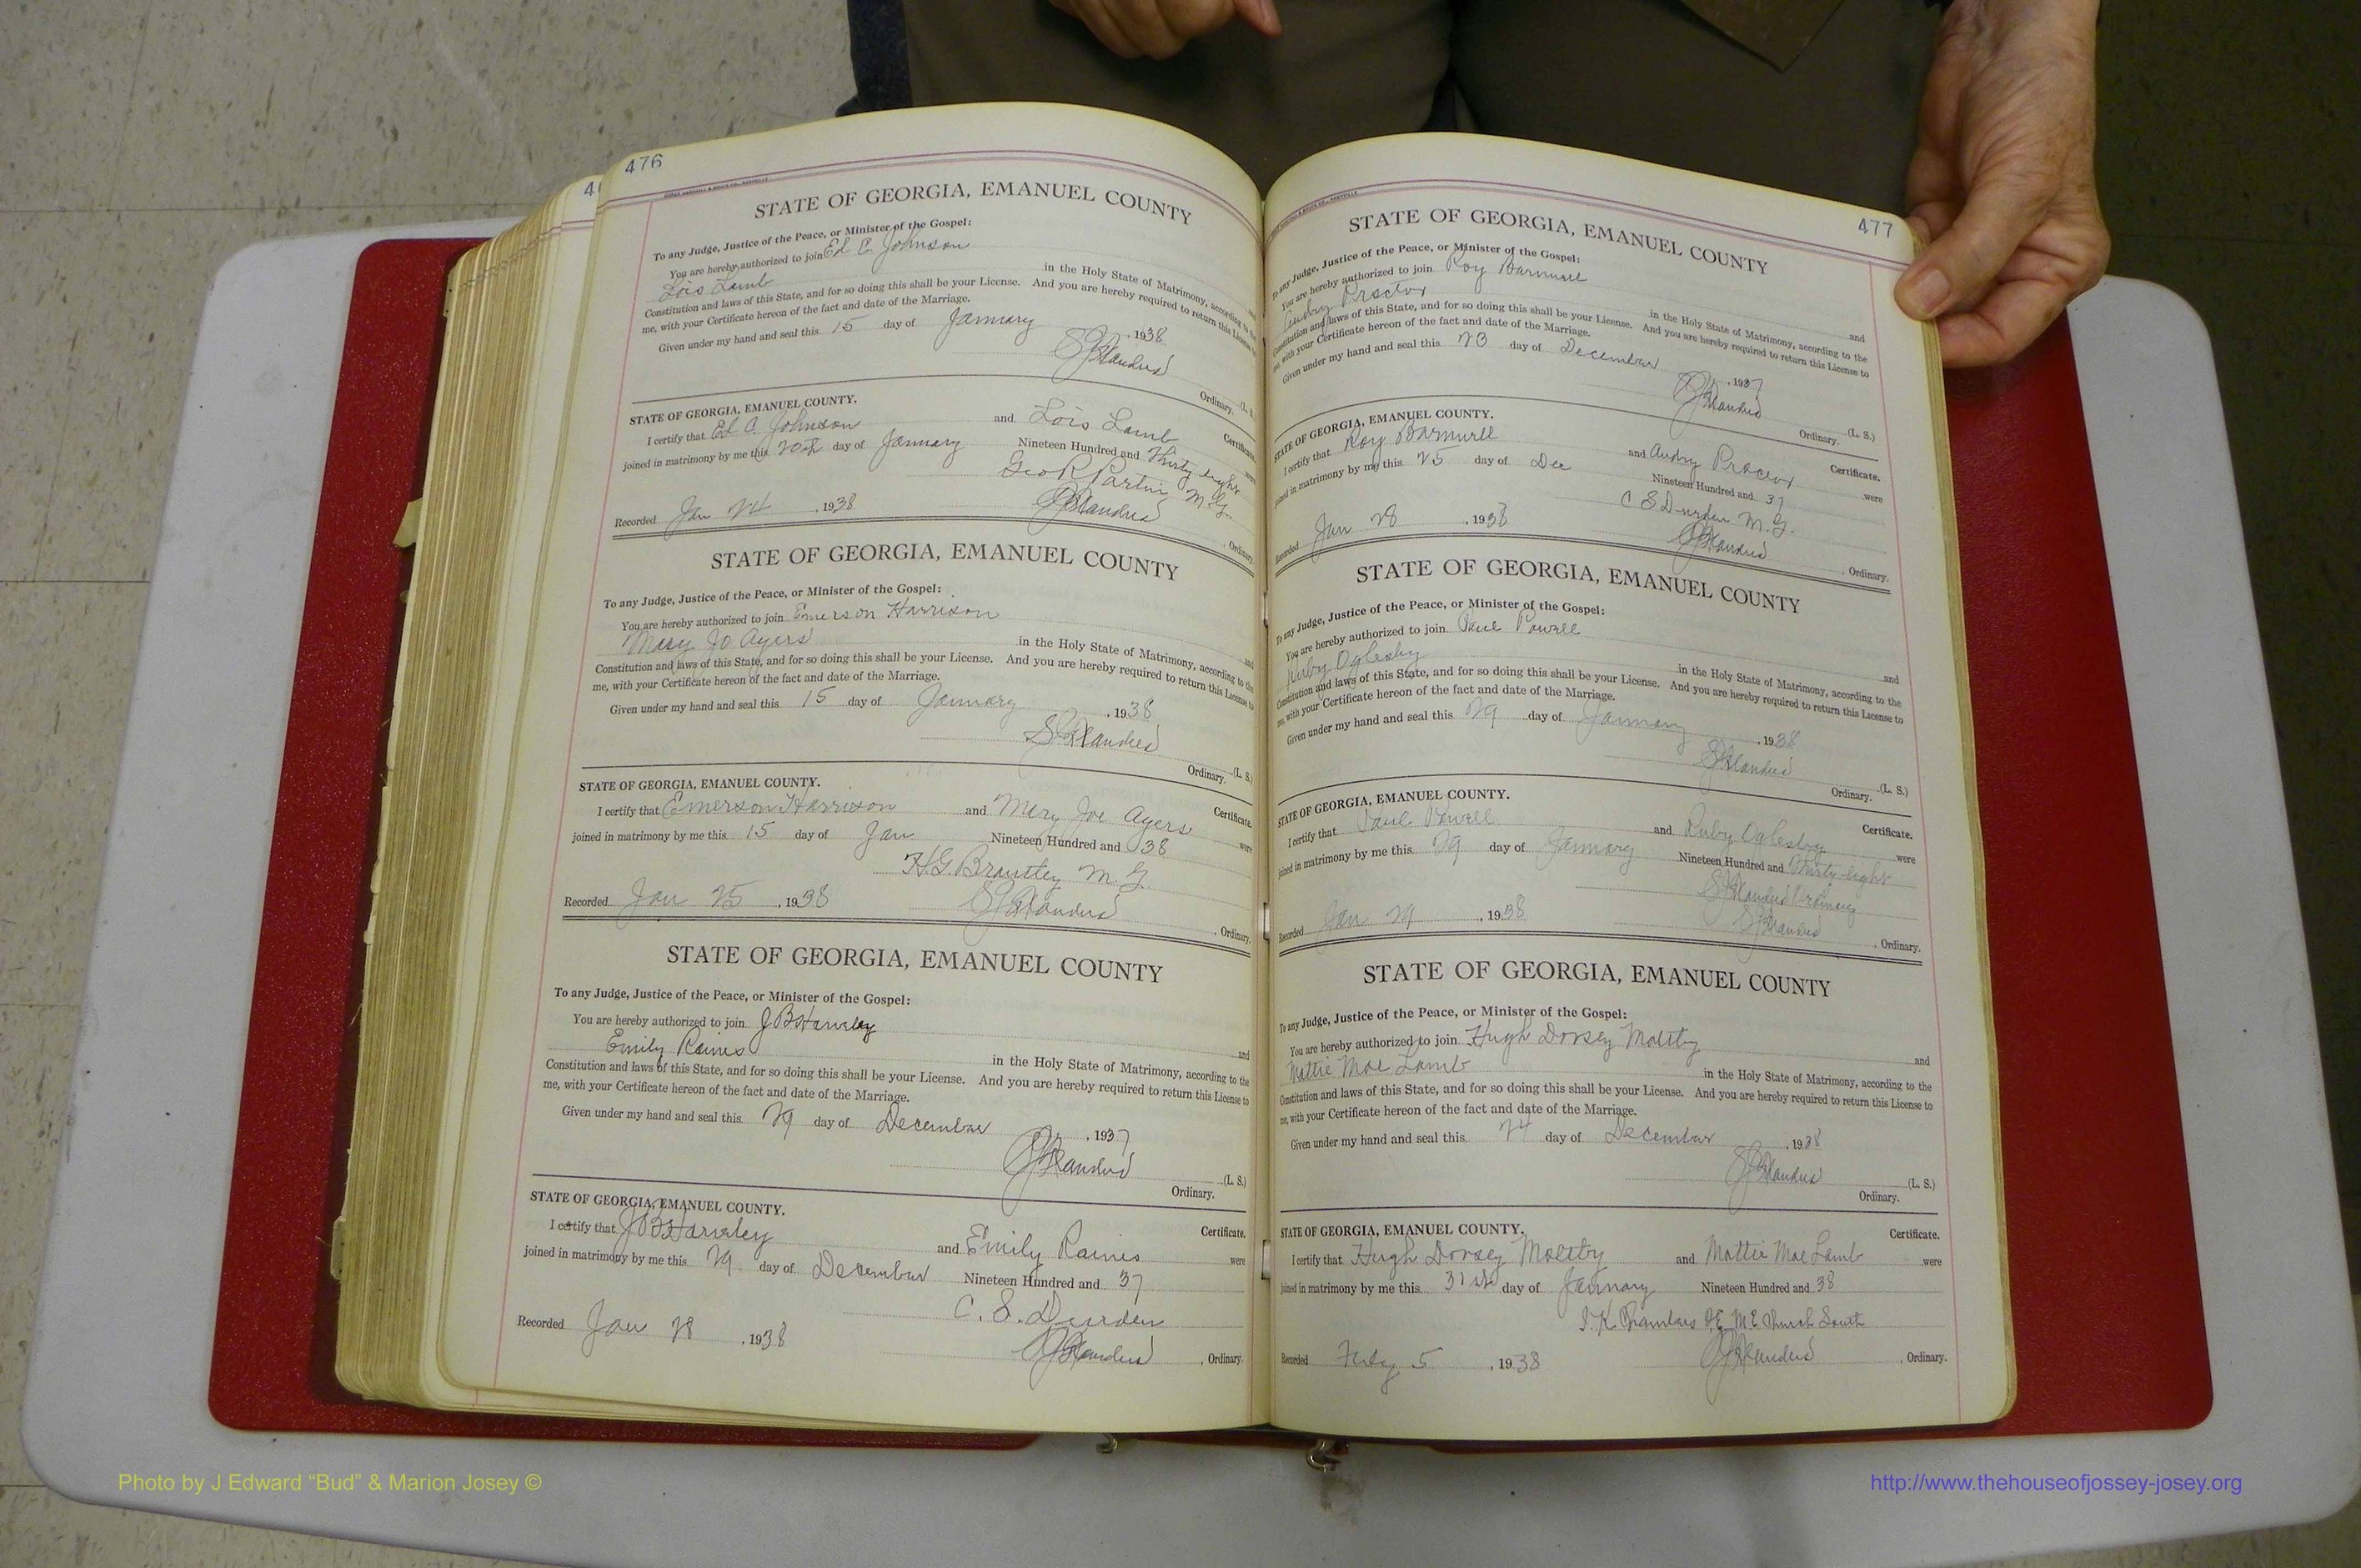 476
STATE OF GEORGIA, EMANUEL COUNTY
To any Judge, Justice of the Peace, or Minister of the Gospel:
You are hereby authorized to join Ed C. Johnson
and
Lois Lamb in the Holy State of Matrimony, according to the
Constitution and laws of this State, and for so doing this shall be your License. And you are hereby required to return this License to
me, with your Certificate hereon of the fact and date of the Marriage.
Given under my hand and seal this 15 day of January, 1938
Ordinary. (L. S.)
STATE OF GEORGIA, EMANUEL COUNTY. Certificate.
I certify that Ed C. Johnson and Lois Lamb were
joined in matrimony by me this 20th day of January Nineteen Hundred and Thirty-eight
Geo R Partin, M.G.
Recorded Jan 24, 1938
, Ordinary.
STATE OF GEORGIA, EMANUEL COUNTY
To any Judge, Justice of the Peace, or Minister of the Gospel:
You are hereby authorized to join Emerson Harrison
and
Mary Jo Ayers in the Holy State of Matrimony, according to the
Constitution and laws of this State, and for so doing this shall be your License. And you are hereby required to return this License to
me, with your Certificate hereon of the fact and date of the Marriage.
Given under my hand and seal this 15 day of January, 1938
(L. S.)
Ordinary.
STATE OF GEORGIA, EMANUEL COUNTY. Certificate.
I certify that Emerson Harrison and Mary Joe Ayers were
joined in matrimony by me this 15 day of Jan Nineteen Hundred and 38
H.G. Brantley M.G.
Recorded Jan 25, 1938
, Ordinary.
STATE OF GEORGIA, EMANUEL COUNTY
To any Judge, Justice of the Peace, or Minister of the Gospel:
You are hereby authorized to join J B
and
Emily Raines in the Holy State of Matrimony, according to the
Constitution and laws of this State, and for so doing this shall be your License. And you are hereby required to return this License to
me, with your Certificate hereon of the fact and date of the Marriage.
Given under my hand and seal this 29 day of December, 1937
(L. S.)
Ordinary.
STATE OF GEORGIA, EMANUEL COUNTY. Certificate.
I certify that J B and Emily Raines were
joined in matrimony by me this 29 day of December Nineteen Hundred and 37
C. S. Durden
Recorded Jan 28, 1938
, Ordinary.
477
STATE OF GEORGIA, EMANUEL COUNTY
To any Judge, Justice of the Peace, or Minister of the Gospel:
You are hereby authorized to join Roy Barnwell
and
Audry Proctor in the Holy State of Matrimony, according to the
Constitution and laws of this State, and for so doing this shall be your License. And you are hereby required to return this License to
me, with your Certificate hereon of the fact and date of the Marriage.
Given under my hand and seal this 23 day of December, 1937
(L. S.)
Ordinary.
STATE OF GEORGIA, EMANUEL COUNTY. Certificate.
I certify that Roy Barnwell and Audry Proctor were
joined in matrimony by me this 25 day of Dec Nineteen Hundred and 37
C S Durden M.G.
Recorded Jan 28, 1938
, Ordinary.
STATE OF GEORGIA, EMANUEL COUNTY
To any Judge, Justice of the Peace, or Minister of the Gospel:
You are hereby authorized to join Paul Powell
and
Ruby Oglesby in the Holy State of Matrimony, according to the
Constitution and laws of this State, and for so doing this shall be your License. And you are hereby required to return this License to
me, with your Certificate hereon of the fact and date of the Marriage.
Given under my hand and seal this 29 day of January, 1938
(L. S.)
Ordinary.
STATE OF GEORGIA, EMANUEL COUNTY. Certificate.
I certify that Paul Powell and Ruby Oglesby were
joined in matrimony by me this 29 day of January Nineteen Hundred and Thirty-eight
Ordinary
Recorded Jan 29, 1938
, Ordinary.
STATE OF GEORGIA, EMANUEL COUNTY
To any Judge, Justice of the Peace, or Minister of the Gospel:
You are hereby authorized to join Hugh Dorsey
and
Mattie Mae Lamb in the Holy State of Matrimony, according to the
Constitution and laws of this State, and for so doing this shall be your License. And you are hereby required to return this License to
me, with your Certificate hereon of the fact and date of the Marriage.
Given under my hand and seal this 24 day of December, 1938
(L. S.)
Ordinary.
STATE OF GEORGIA, EMANUEL COUNTY. Certificate.
I certify that Hugh Dorsey and Mattie Mae Lamb were
joined in matrimony by me this 31st day of January Nineteen Hundred and 38
Chambers P.E. M.E. Church South
Recorded 5, 1938
, Ordinary.
Photo by J Edward “Bud” & Marion Josey ©
http://www.thehouseofjossey-josey.org